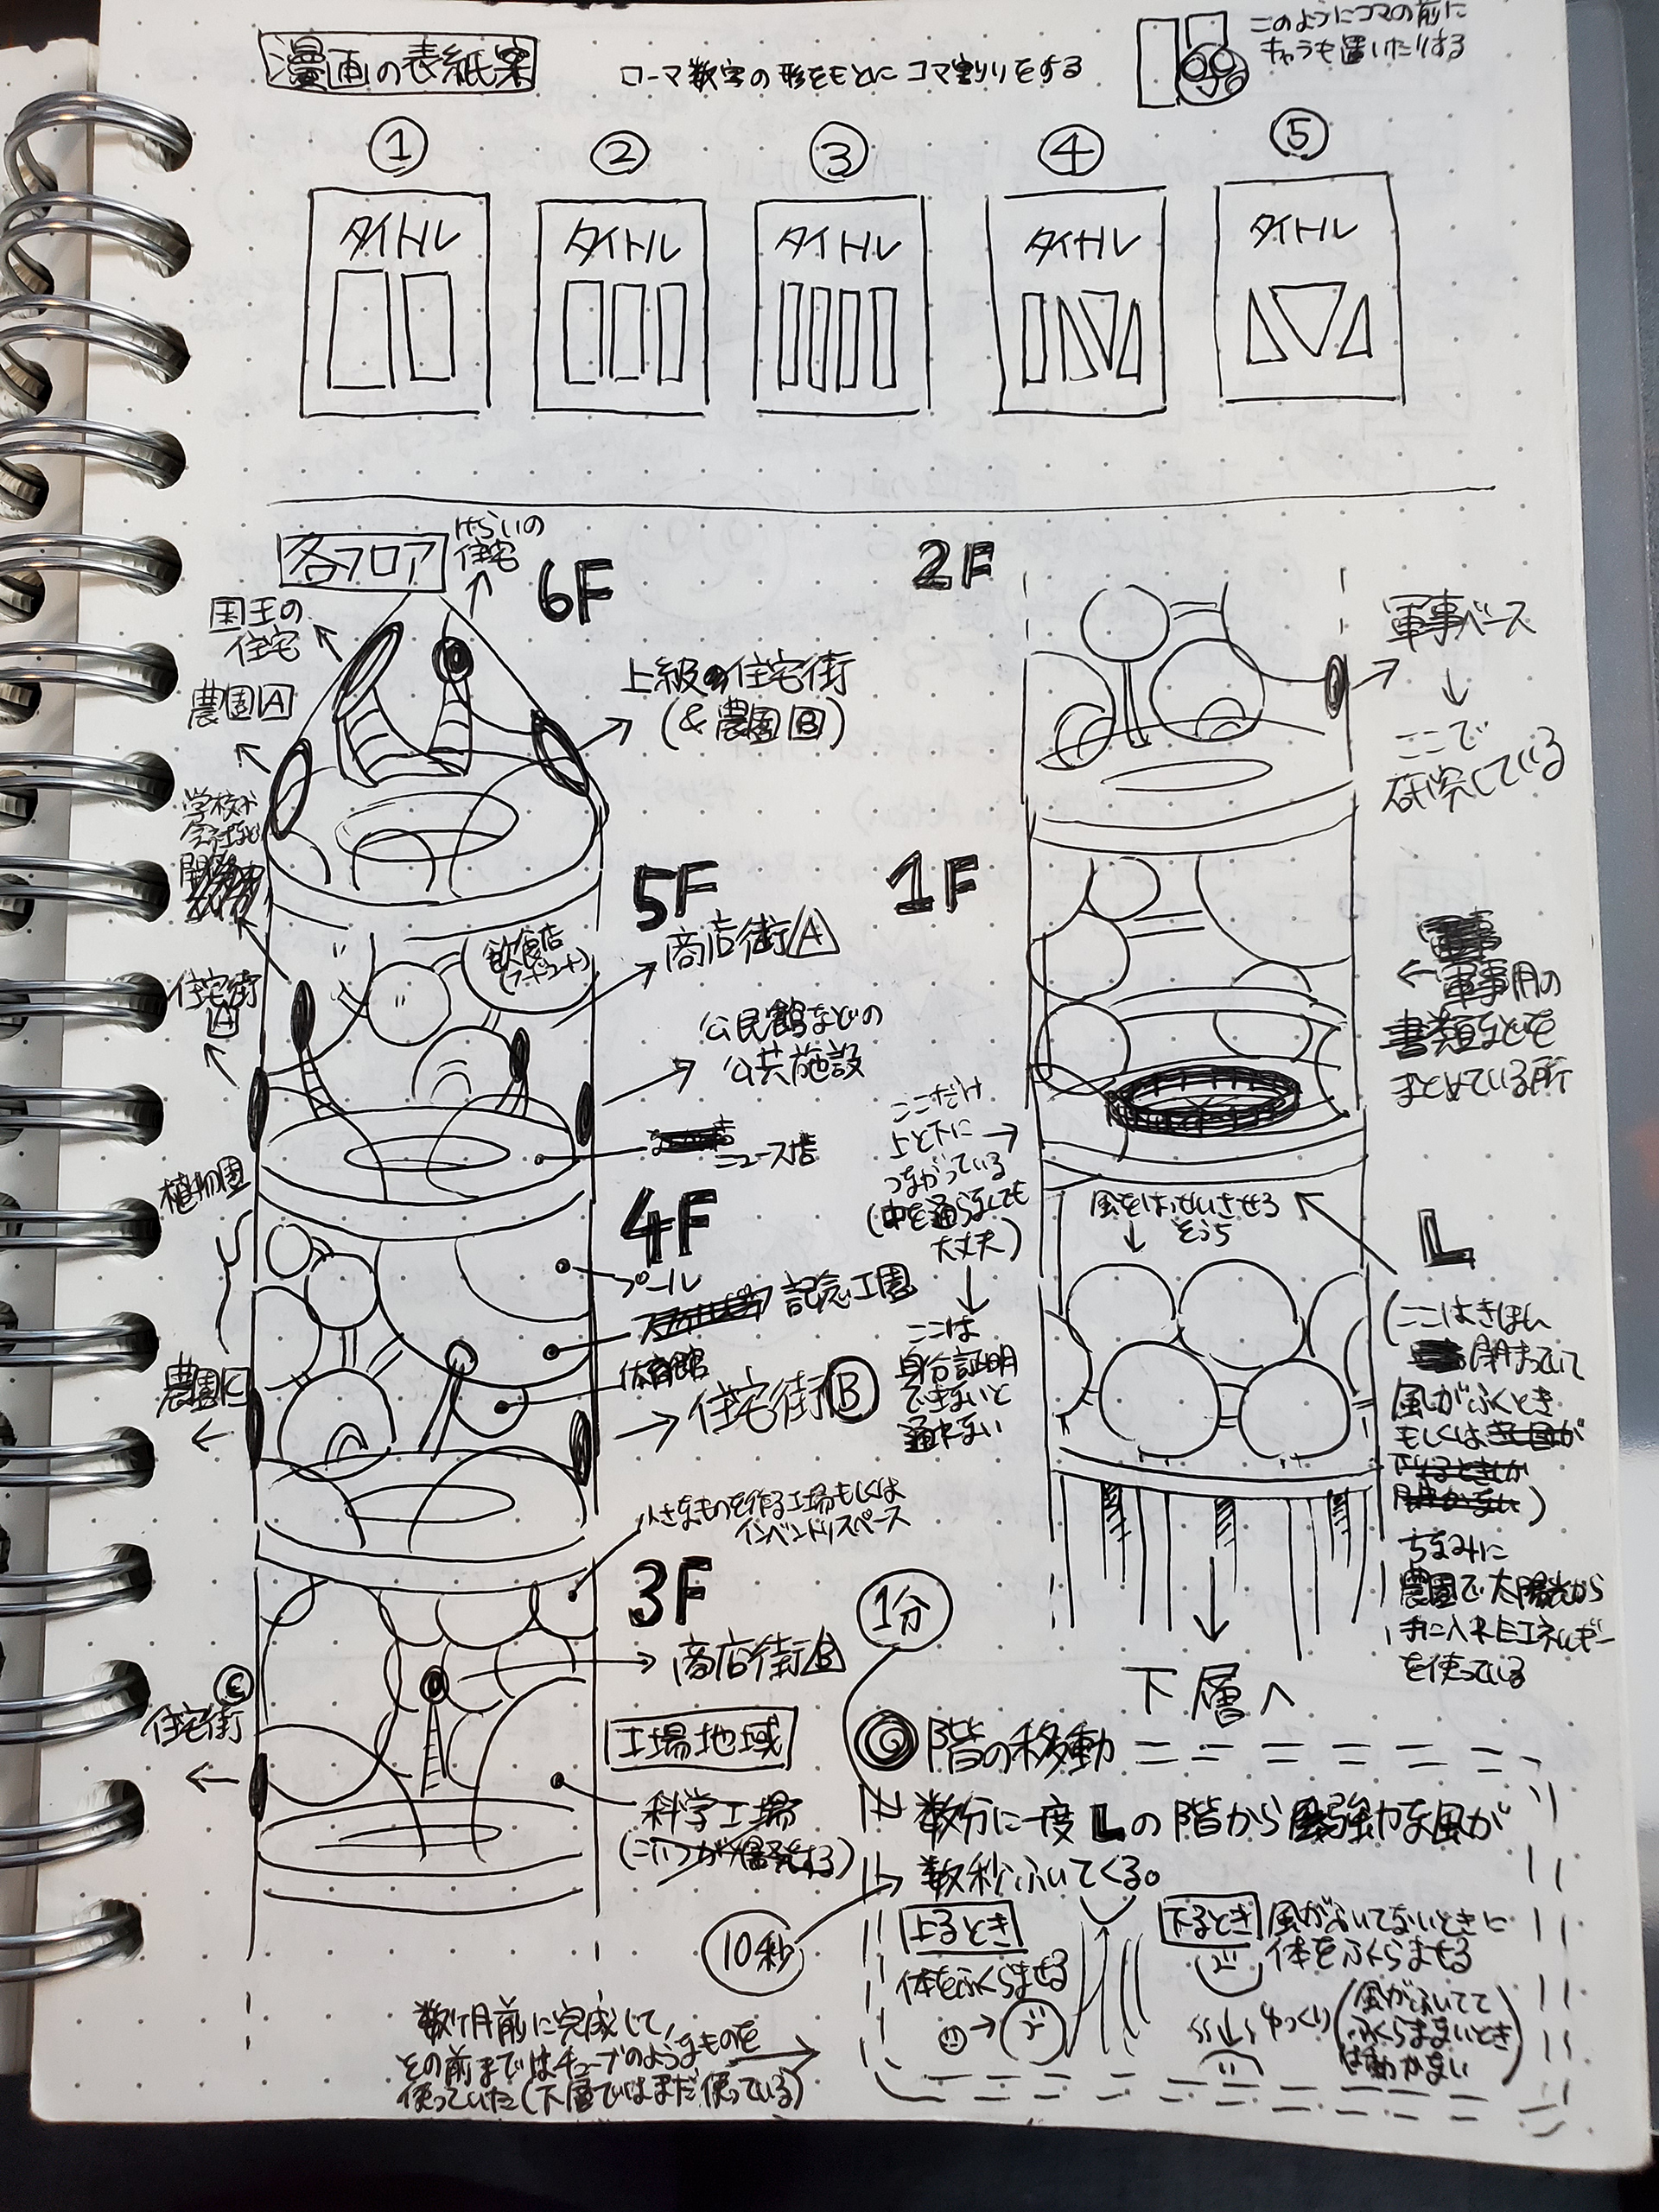 漫画の表紙案
ローマ数字の形をもとにコマ割りをする
このようにコマの前に
キャラも置いたりする
① ② ③ ④ ⑤
タイトル タイトル タイトル タイトル タイトル
各フロア
けらいの
住宅
6F
国王の
住宅
農園A
上級の住宅街
(&農園B)
学校や
会社など
5F
商店街A
飲食店
(フードコート)
住宅街
A
公民館などの
公共施設
ニュース塔
植物園
4F
プール
記念公園
体育館
農園C
住宅街B
小さなものを作る工場もしくは
インベントリスペース
3F
商店街B
C
住宅街
工場地域
科学工場
(こいつが爆発する)
2F
軍事ベース
ここで
研究している
1F
軍事用の
書類などを
まとめている所
ここだけ
上と下に
つながっている
(中を通らなくても
大丈夫)
ここは
身分証明
できないと
通れない
風をはっせいさせる
そうち
L
(ここはきほん
閉まっていて
風がふくとき
もしくは
ちなみに
農園で太陽光から
手に入れたエネルギー
を使っている
下層へ
1分
◎階の移動
数分に一度Lの階から強力な風が
数秒ふいてくる。
10秒
上るとき
体をふくらませる
下るとき
風がふいてないときに
体をふくらませる
ゆっくり
(風がふいてて
ふくらまないとき
は動かない)
数ヶ月前に完成して、
その前まではチューブのようなものを
使っていた(下層ではまだ使っている)